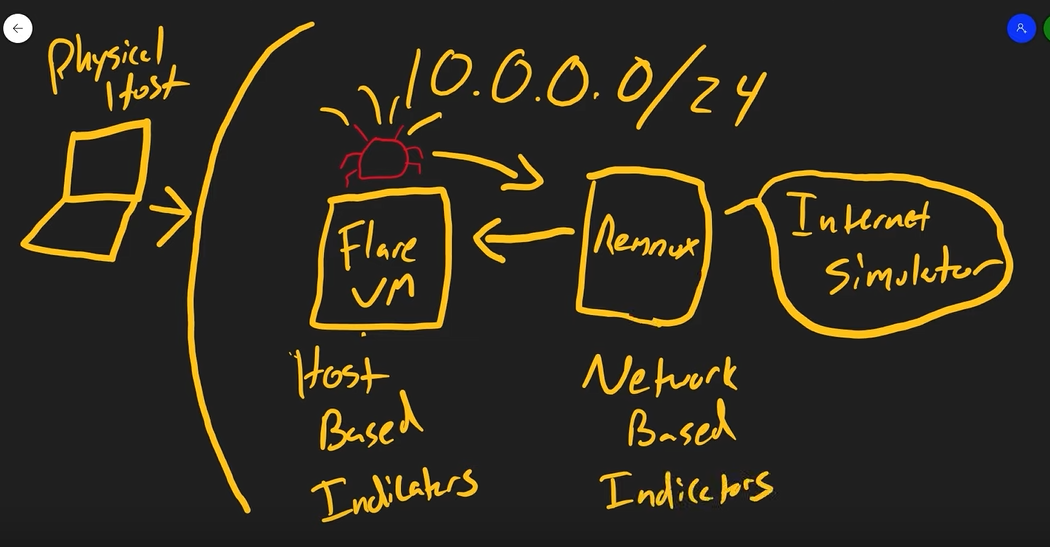 Physical
Host
10.0.0.0/24
Flare
VM
Remnux
Internet
Simulator
Host
Based
Indicators
Network
Based
Indicators